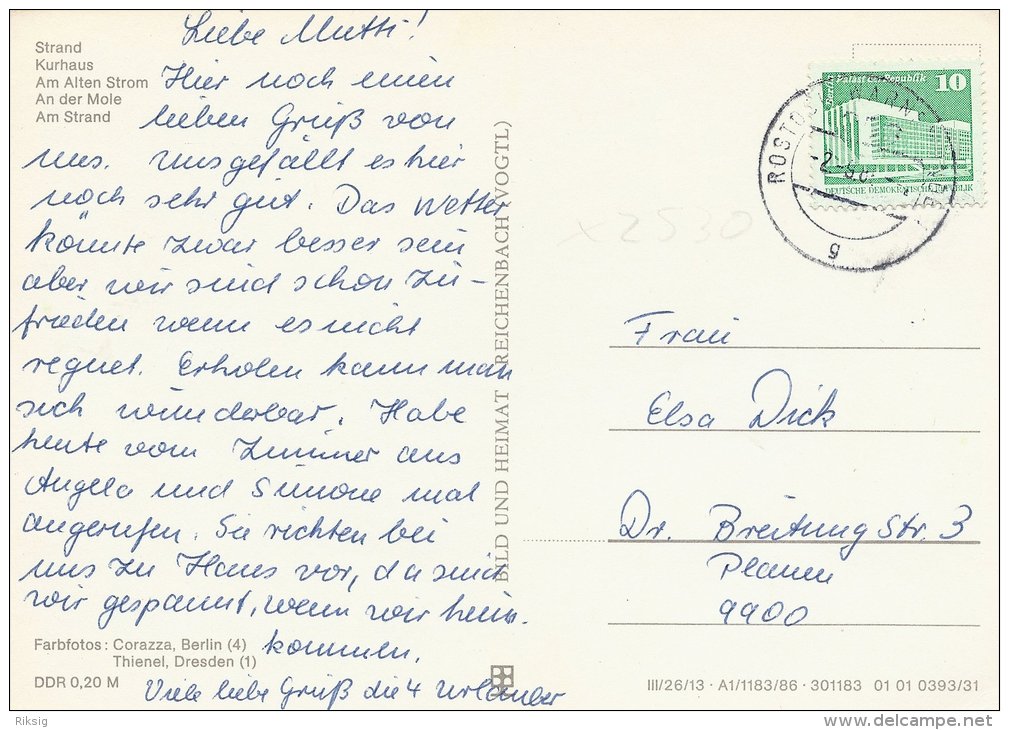 Strand
Kurhaus
Am Alten Strom
An der Mole
Am Strand
Liebe Mutti!
Hier noch einen
lieben Gruß von
uns. Uns gefällt es hier
noch sehr gut. Das Wetter
könnte zwar besser sein
aber wir sind schon zu-
frieden wenn es nicht
regnet. Erholen kann man
sich wunderbar. Habe
heute vom Zimmer aus
Angela und Simone mal
angerufen. Sie richten bei
uns zu Haus vor, da sind
wir gespannt, wenn wir heim-
kommen.
Viele liebe Grüß die 4 Urlauber
Farbfotos: Corazza, Berlin (4)
Thienel, Dresden (1)
DDR 0,20 M
BILD UND HEIMAT REICHENBACH (VOGTL)
Palast der Republik
10
DEUTSCHE DEMOKRATISCHE REPUBLIK
ROSTOCK
g
x 2530
Frau
Elsa Dick
Dr. Breitung Str. 3
Plauen
9900
III/26/13 · A1/1183/86 · 301183 01 01 0393/31
Riksig
www.delcampe.net